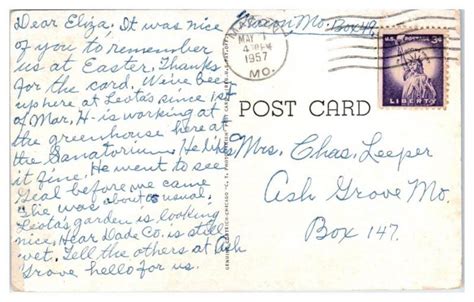 Dear Eliza, It was nice
of you to remember
us at Easter. Thanks
for the card. We've been
up here at Leota's since 1st
of Mar, H- is working at
the greenhouse here at
the Sanatorium. He likes
it fine. He went to see
Geal before we came
She was about as usual,
Leota's garden is looking
nice, Hear Dade Co. is still
wet. Tell the others at Ash
Grove hello for us.
Macon Mo. Box 49.
MAY 1
4 PM
1957
MO.
U.S. POSTAGE 3¢
LIBERTY
POST CARD
Mrs. Chas. Leeper
Ash Grove Mo.
Box 147.